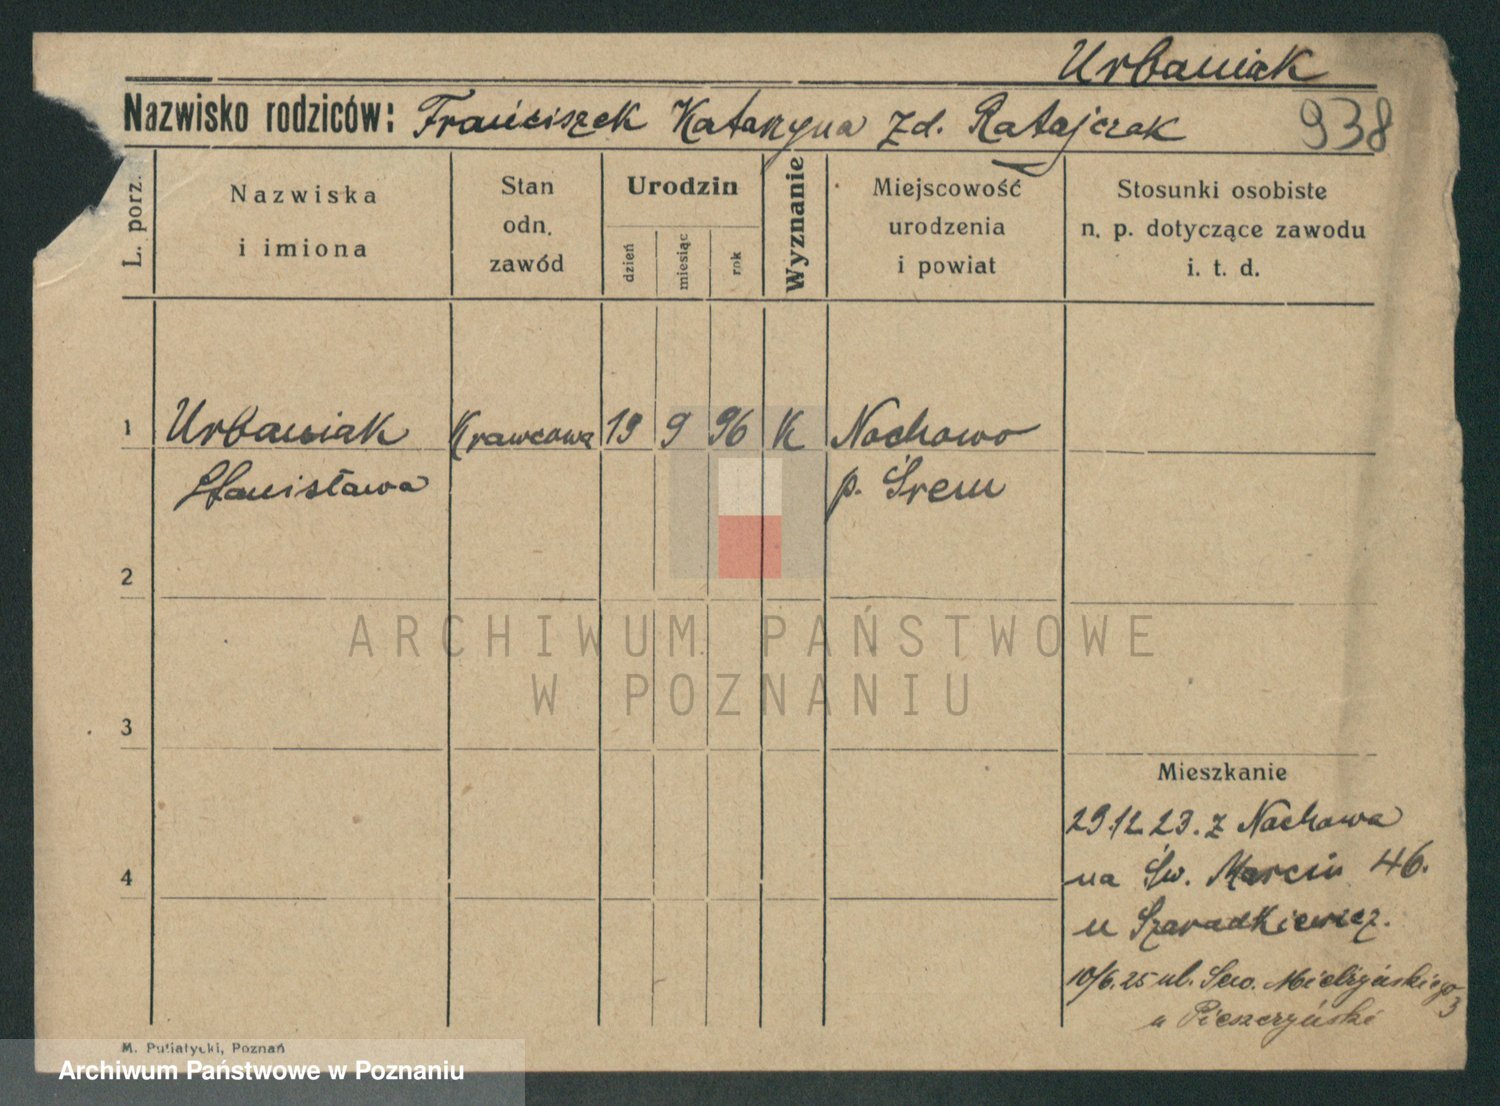 Urbaniak
Nazwisko rodziców: Franciszek Katarzyna zd. Ratajczak
938
L. porz.
Nazwiska
i imiona
Stan
odn.
zawód
Urodzin
dzień
miesiąc
rok
Wyznanie
Miejscowość
urodzenia
i powiat
Stosunki osobiste
n. p. dotyczące zawodu
i. t. d.
1 Urbaniak Krawcowa 19 9 96 K Nochowo
Stanisława p. Śrem
2
ARCHIWUM PAŃSTWOWE
W POZNANIU
3
Mieszkanie
29.12.23. z Nochowa
4
na Św. Marcin 46.
u Szaradkiewicz.
10/6.25 ul. Sew. Mielżyńskiego
3
u Pieszczyński
M. Putiatycki, Poznań
Archiwum Państwowe w Poznaniu